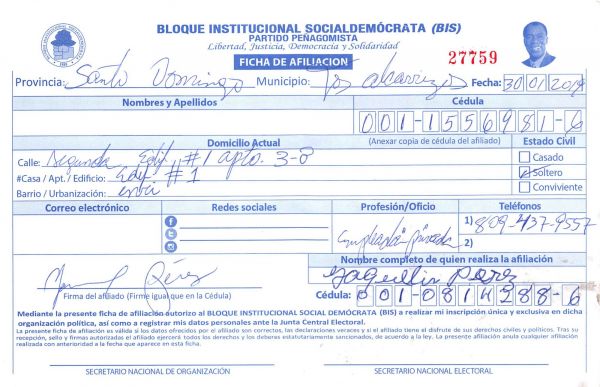 BLOQUE INSTITUCIONAL SOCIALDEMÓCRATA (BIS)
PARTIDO PEÑAGOMISTA
Libertad, Justicia, Democracia y Solidaridad
FICHA DE AFILIACIÓN
27759
Provincia: Santo Domingo Municipio: Los Alcarrizos Fecha: 30/01/2019
Nombres y Apellidos Cédula
001-1556981-6
Domicilio Actual (Anexar copia de cédula del afiliado) Estado Civil
Calle: Segunda Edif #1 apto. 3-8
Casado
#Casa / Apt. / Edificio: Edif #1
Soltero
Barrio / Urbanización:
Conviviente
Correo electrónico Redes sociales Profesión/Oficio Teléfonos
1) 809-437-9557
Empleada privada 2)
Nombre completo de quien realiza la afiliación
Pérez
Yaquelin Perez
Firma del afiliado (Firme igual que en la Cédula)
Cédula: 001-0814288-6
Mediante la presente ficha de afiliación autorizo al BLOQUE INSTITUCIONAL SOCIAL DEMÓCRATA (BIS) a realizar mi inscripción única y exclusiva en dicha
organización política, así como a registrar mis datos personales ante la Junta Central Electoral.
La presente ficha de afiliación es válida si los datos ofrecidos por el afiliado son correctos, las declaraciones veraces y si el afiliado tiene el disfrute de sus derechos civiles y políticos. Tras su
recepción, sello y firmas autorizadas el afiliado ejercerá todos los derechos y los deberes estatutariamente sancionados, de acuerdo a la ley. La presente afiliación anula cualquier afiliación
realizada con anterioridad a la fecha que aparece en esta ficha.
SECRETARIO NACIONAL DE ORGANIZACIÓN SECRETARIO NACIONAL ELECTORAL